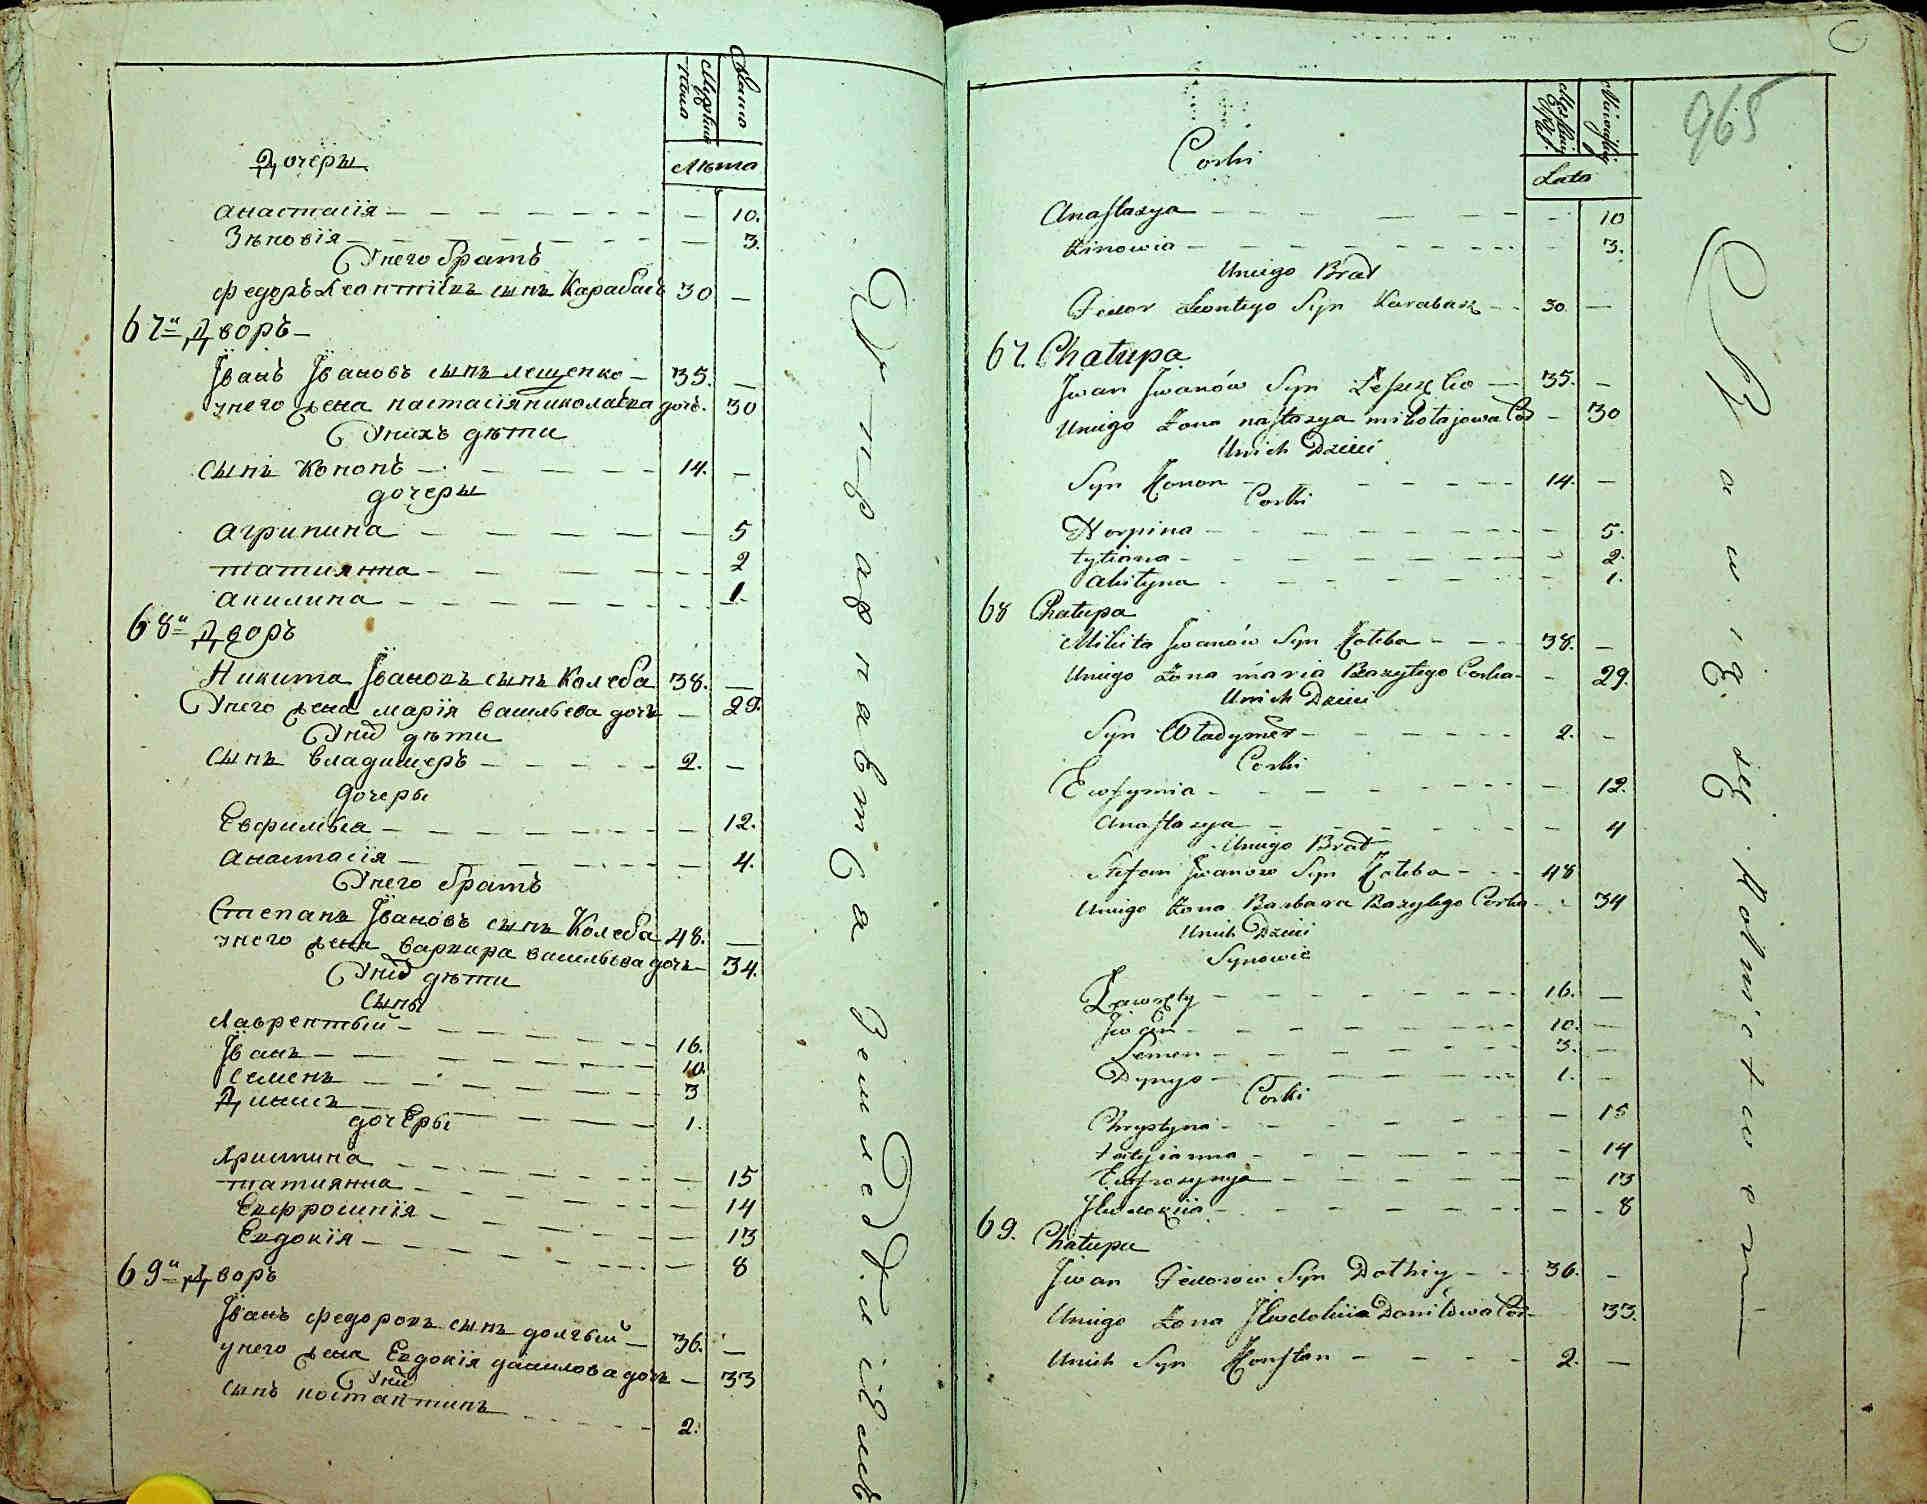 Мужска пола
Женска
Лѣта
Дочеры
Анастасія 10.
Зѣновія 3.
Унего братъ
Федоръ Леонтіевъ сынъ Карабашъ 30
67й Дворъ
Іванъ Івановъ сынъ Лещенко 35.
унего жена Настасія Николаева дочь. 30
Унихъ дѣти
Сынъ Кононъ 14.
дочеры
Агрипина 5
Татиянна 2
Акилина 1
68й Дворъ
Никита Івановъ сынъ Колеба 38.
Унего жена Марія Васильева дочь 29.
Уних дѣти
Сынъ Владимеръ 2.
дочеры
Евфимія 12.
Анастасія 4.
Унего братъ
Степанъ Івановъ сынъ Колеба 48.
унего жена Варвара Васильева дочь 34.
Уних дѣти
Сыны
Лаврентый 16.
Іванъ 10.
Семенъ 3
Дишъ 1.
дочеры
Христина 15
Татиянна 14
Евфросинія 13
Евдокія 8
69й Дворъ
Іванъ Федоровъ сынъ Долгый 36.
унего жена Евдокія Данилова дочь 33
Уних
Сынъ Костантинъ 2.
Упражняется Земледѣліемъ
965
Lata
Corki
Anastazya 10
Zinowia 3.
Uniego Brat
Fedor Leontego Syn Karabasz 30.
67. Chatupa
Jwan Jwanów Syn Leszczko 35.
Uniego Żona nastazya mikołajowa Cor 30
Unich Dzieci
Syn Konon 14.
Corki
Horpina 5.
tytiana 2.
akilyna 1.
68 Chatupa
Mikita Jwanów Syn Koleba 38.
Uniego Żona maria Bazylego Corka 29.
Unich Dzieci
Syn Władymer 2.
Corki
Ewfymia 12.
Anastazya 4
Uniego Brat
Stefan Jwanow Syn Koleba 48
Uniego Żona Barbara Bazylego Corka 34
Unich Dzieci
Synowie
Ławrety 16.
Jwan 10.
Semen 3.
Dynys 1.
Corki
Chrystyna 15
tatyianna 14
Ewfrozynya 13
Jewdokiia 8
69. Chatupa
Jwan Fedorow Syn Dołhiy 36.
Uniego Żona Jewdokiia Daniłowa Cor 33.
Unich Syn Konstan 2.
Bawią się Rolnictwem